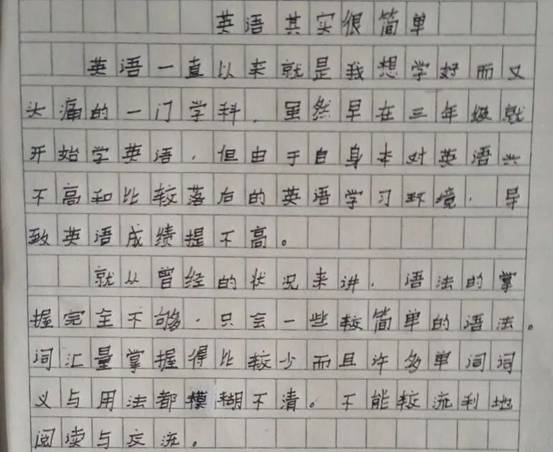 英语其实很简单
英语一直以来就是我想学好而又
头痛的一门学科，虽然早在三年级就
开始学英语，但由于自身本对英语兴
不高和比较落后的英语学习环境，导
致英语成绩提不高。
就以曾经的状况来讲，语法的掌
握完全不够，只会一些较简单的语法。
词汇量掌握得比较少而且许多单词词
义与用法都模糊不清。不能较流利地
阅读与交流。